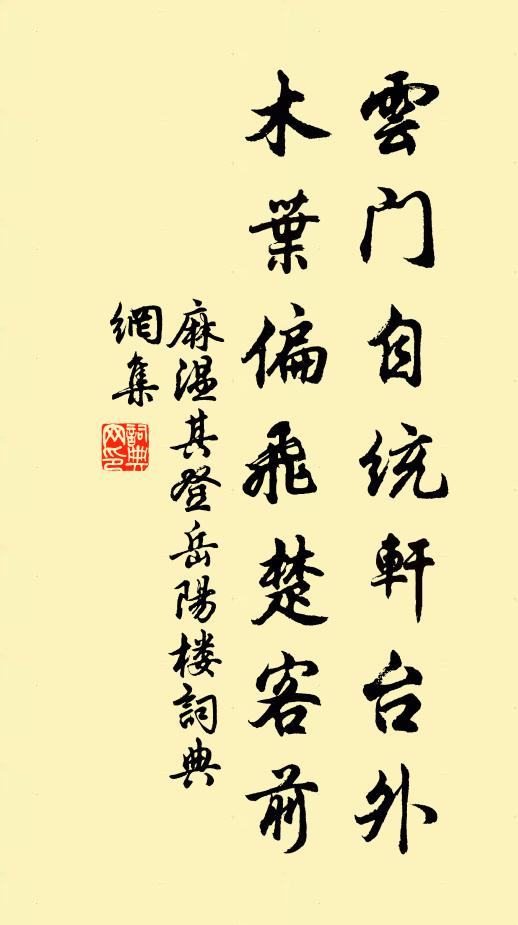 雲門自統軒台外
木葉偏飛楚客前
麻温其登岳陽楼詞典
網集
詞典
网印